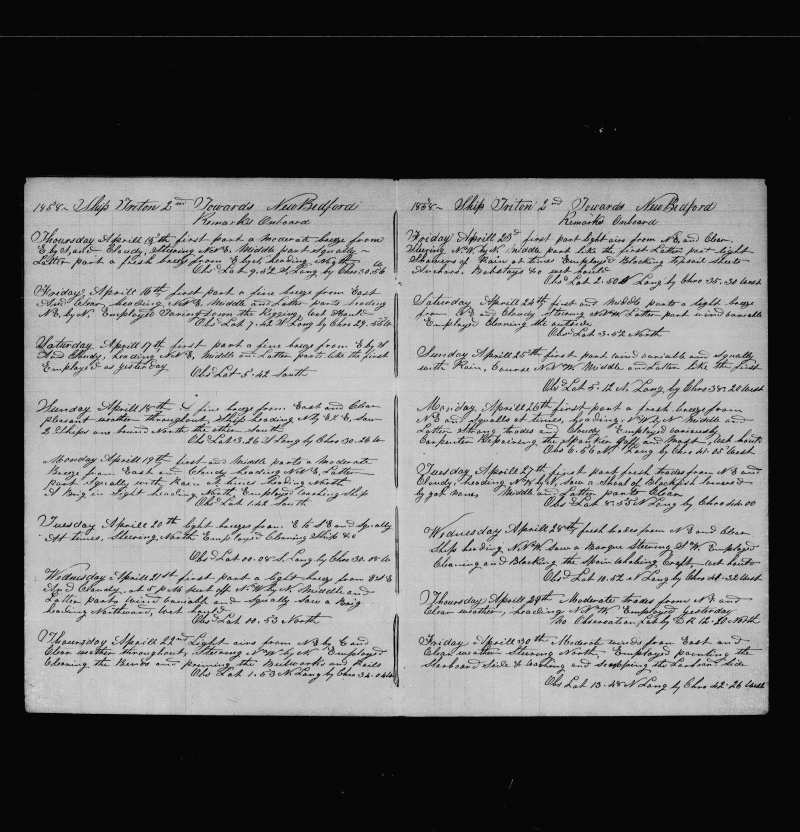 1858 - Ship Triton 2nd Towards New Bedford
Remarks Onboard
Thoursday Aprill 15th first part a moderate breeze from
E by S and Cloudy, Steering NNE, Middle part squally -
Latter part a fresh breeze from E by S heading North
Obs Lat 9.52 S, Long by Chro 30.56 W
Friday, Aprill 16th first part a fine breeze from East
And Clear, heading NNE, Middle and Latter parts heading
NE, by N. Employed Taring down the Rigging, wet
Obs Lat 7.42 Long by Chro 29.58 W
Saturday. Aprill 17th first part a fine breeze from E by S
And Cloudy, heading NNE, Middle and Latter parts like the first
Employed as yesterday
Obs Lat 5.42 South
Sunday Aprill 18th A fine breeze from East and Clear
pleasent weather throughout, Ship heading N by E 1/2 E, Saw
2 Ships one bound North the other South
Obs Lat 3.26 S Long by Chro 30.26 W
Monday Aprill 19th first and middle parts a Moderate
Breeze from East and Cloudy heading NNE, Latter
part Squally with Rain at times heading North
A Brig in Sight heading North, Employed washing Ship
Obs Lat 1.42 South
Tuesday Aprill 20th light breezes from E to SE and Squally
At times, Steering North Employed Cleaning Ship &c
Obs Lat 00.08 S, Long by Chro 30.08 W
Wednesday Aprill 21st first part a light breeze from ESE
And Cloudy, at 5 PM kept off NW by N. Middle and
Latter parts wind variable and Squally Saw a Brig
heading Northward,
Obs Lat 00.53 North
Thoursday Aprill 22nd Light airs from NE by E and
Clear weather throughout, Steering NW by N Employed
Cleaning the Bends and priming the Bullworks and Rails
Obs Lat 1.53 N Long by Chro 34.04 W
1858 - Ship Triton 2nd Towards New Bedford
Remarks Onboard
Friday Aprill 23d first part light airs from NE and Clear
Steering NW by N Middle part like the first Latter part light
Showers of Rain at times Employed Blacking topsail Sheets
Anchors, Bobstays &c
Obs Lat 2.50 N Long by Chro 35.30 West
Saturday Aprill 24th first and Middle parts a light breeze
from NE and Cloudy Steering NNW Latter part wind variable
Employed Cleaning the outside
Obs Lat 3.52 North
Sunday Aprill 25th first part wind variable and Squally
with Rain, Course NNW Middle and Latter like the first
Obs Lat 5.12 N, Long, by Chro 38.20 West
Monday, Aprill 26th first part a fresh breeze from
NE and Squally at times, heading NW by N Middle and
Latter Strong trades and Cloudy Employed variously
Carpenter Repairing the Spanker Gaff and Mast,
Obs 6.56 N Long by Chro 41.05 West
Tuesday Aprill 27th first part fresh trades from NE and
Cloudy, heading NW by N, Saw a Shoal of Blackfish lowered
by got none Middle and Latter parts Clear
Obs Lat 8.55 N Long by Chro 44.00
Wednesday Aprill 28th fresh trades from NE and Clear
Ship heading NNW Saw a Barque Steering SW. Employed
Cleaning and Blacking the Spair Whaleing Craft,
Obs Lat 10.52 N Long by Chro 41.32 West
Thoursday Aprill 29th Moderate trades from NE and
Clear weather, heading NNW Employed yesterday
No Observation Lat by DR 12.20 North
Friday. Aprill 30th Moderate winds from East and
Clear weather Steering North, Employed painting the
Starboard Side & washing and scrapping the Larboard Side
Obs Lat 13.48 N Long by Chro 42.26 West